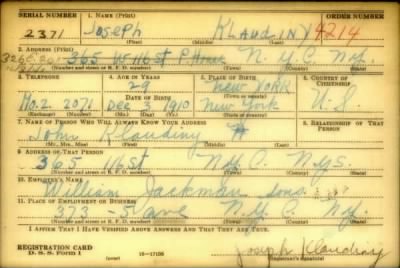 SERIAL NUMBER 1. NAME (Print) ORDER NUMBER
2371 JOSEPH KLAUDINY 4214
(First) (Middle) (Last)
2. ADDRESS (Print)
365 W 116 St N.Y.C. N.Y.
(Number and street or R. F. D. number) (Town) (County) (State)
3. TELEPHONE 4. AGE IN YEARS 5. PLACE OF BIRTH 6. COUNTRY OF CITIZENSHIP
29 NEW YORK
DATE OF BIRTH
MO.2. 2071 Dec 3 1910 New York U.S.
(Exchange) (Number) (Mo.) (Day) (Yr.) (State or country)
7. NAME OF PERSON WHO WILL ALWAYS KNOW YOUR ADDRESS 8. RELATIONSHIP OF THAT PERSON
John Klaudiny
(Mr., Mrs., Miss) (First) (Middle) (Last)
9. ADDRESS OF THAT PERSON
365 116 St N.Y.C. N.Y.S.
(Number and street or R. F. D. number) (Town) (County) (State)
10. EMPLOYER'S NAME
William Jackman sons
11. PLACE OF EMPLOYMENT OR BUSINESS
373 5 ave N.Y.C. N.Y.
(Number and street or R. F. D. number) (Town) (County) (State)
I AFFIRM THAT I HAVE VERIFIED ABOVE ANSWERS AND THAT THEY ARE TRUE.
REGISTRATION CARD
D. S. S. Form 1 (over) 16—17105 Joseph Klaudiny
(Registrant's signature)